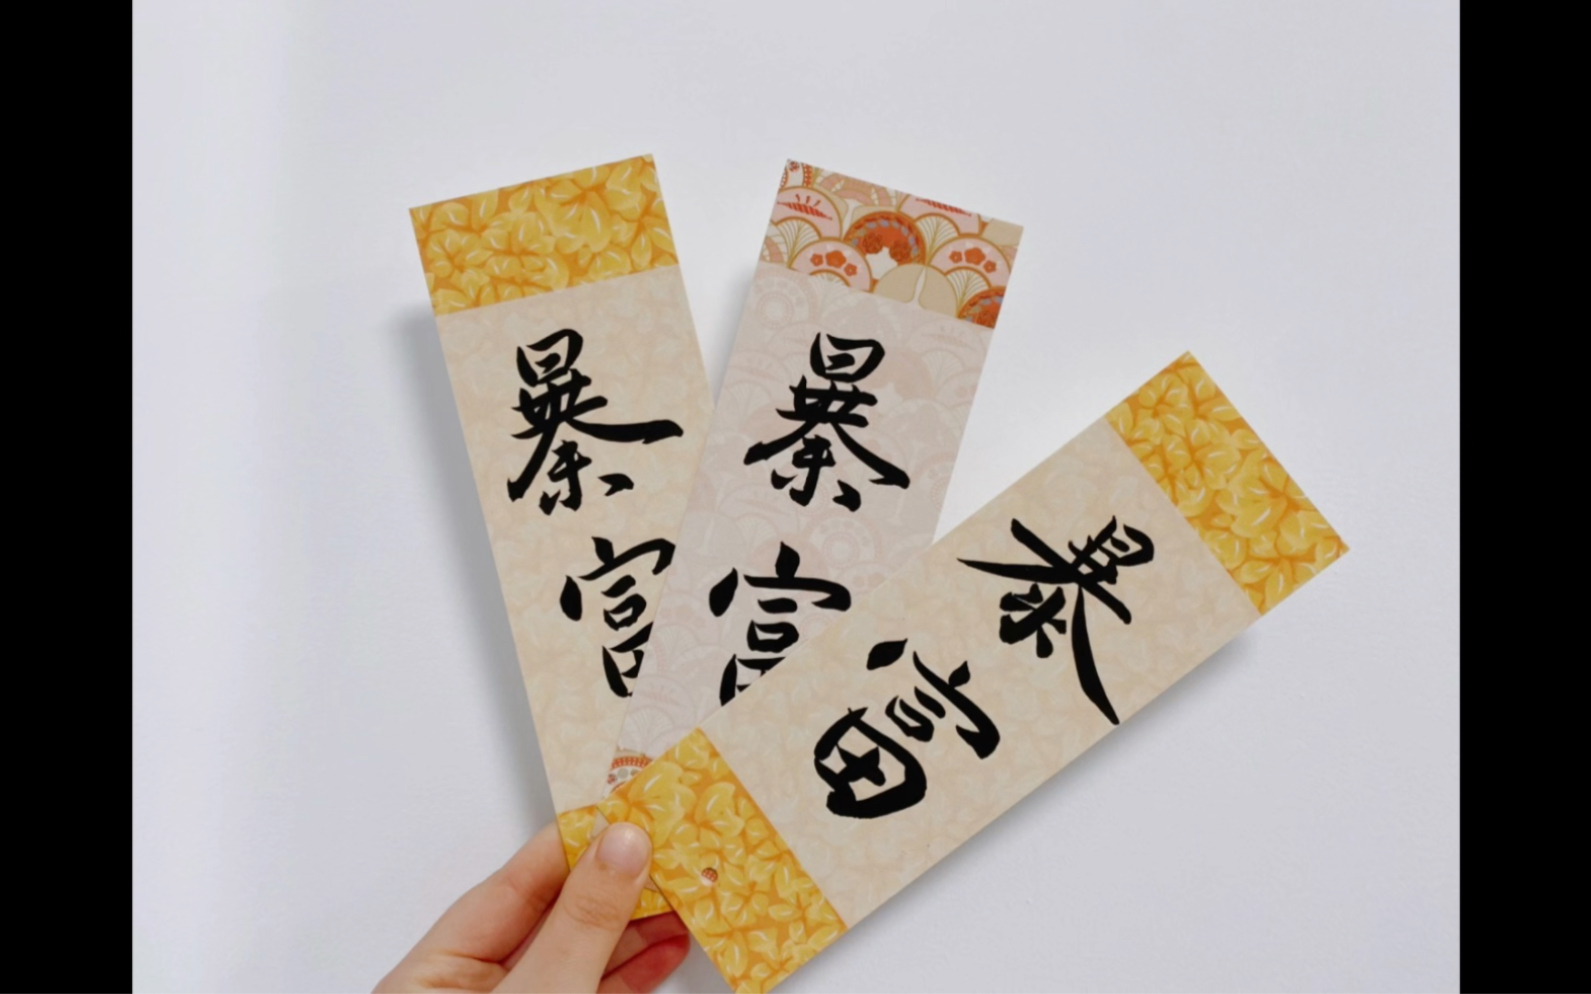 暴富
暴富
暴富